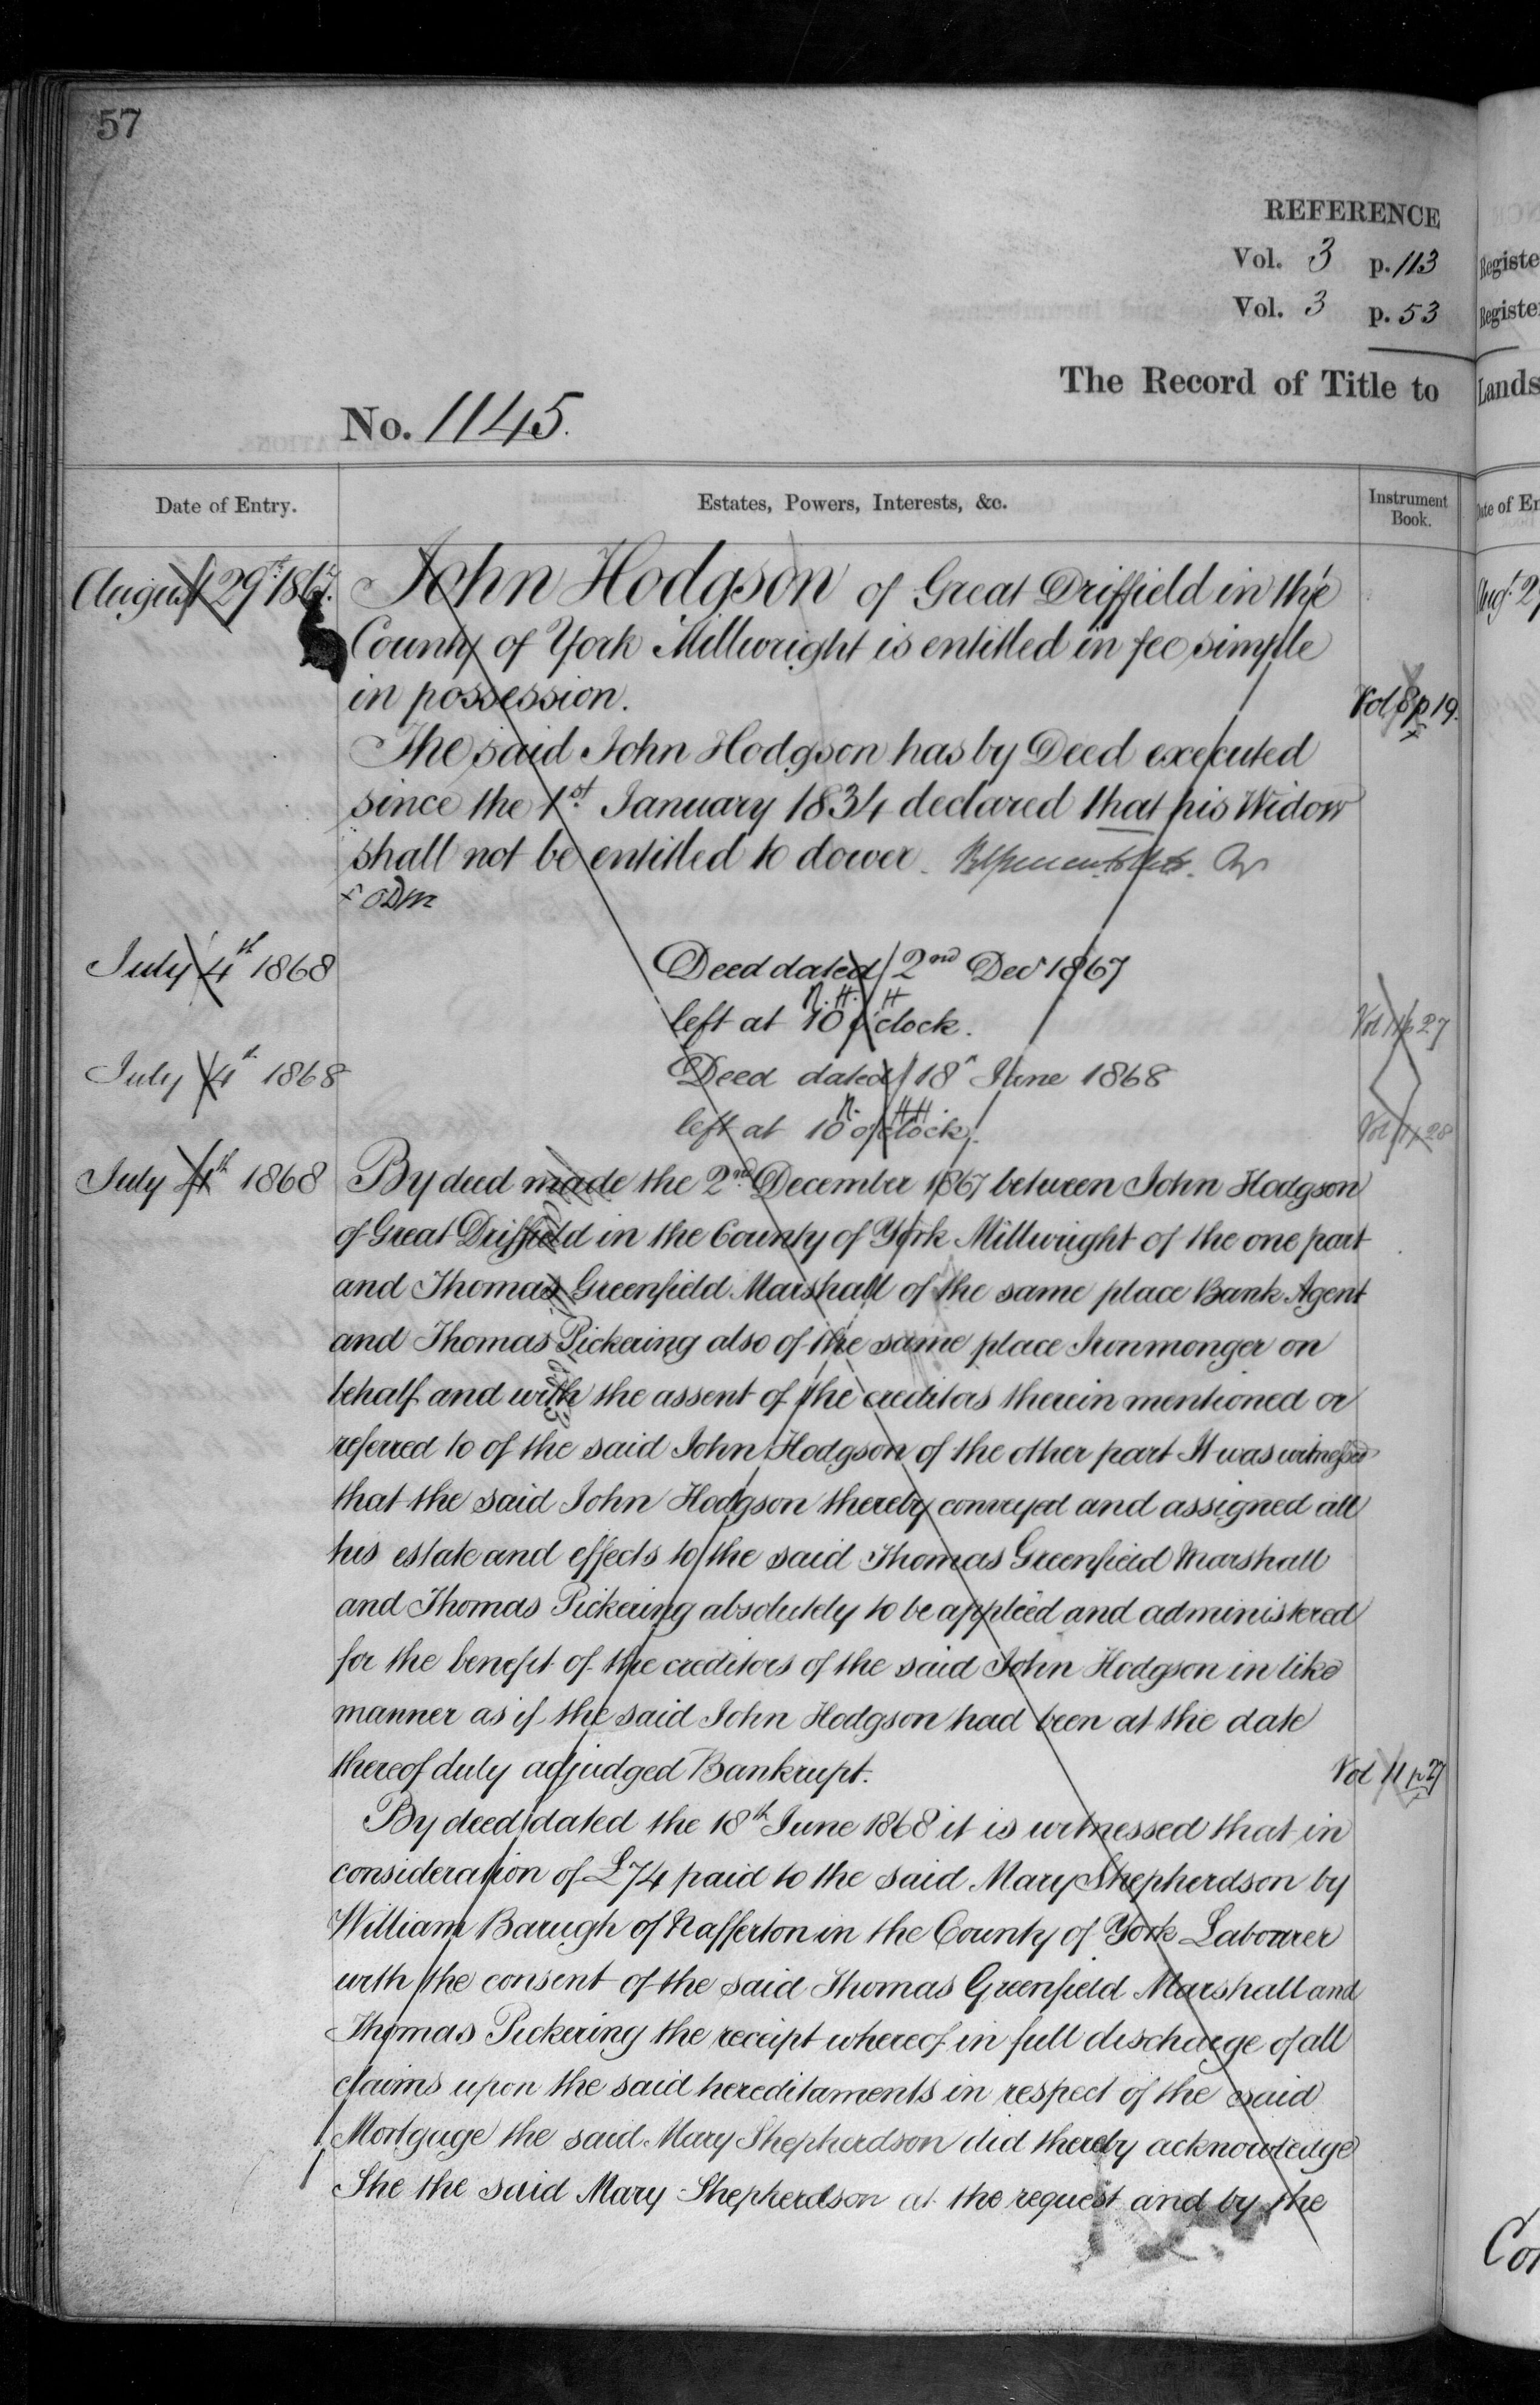 57
REFERENCE
Vol. 3 p. 113
Vol. 3 p. 53
The Record of Title to
No. 1145.
Date of Entry. Estates, Powers, Interests, &c. Instrument Book.
August 29th 1867. John Hodgson of Great Driffield in the
County of York Millwright is entitled in fee simple
in possession. Vol 8 p 19.
The said John Hodgson has by Deed executed
since the 1st January 1834 declared that his Widow
shall not be entitled to dower.
July 4th 1868 Deed dated 2nd Decr 1867
left at 10 o'clock. Vol 11 p 27
July 4th 1868 Deed dated 18th June 1868
left at 10 o'clock. Vol 11 p 28
July 4th 1868 By deed made the 2nd December 1867 between John Hodgson
of Great Driffield in the County of York Millwright of the one part
and Thomas Greenfield Marshall of the same place Bank Agent
and Thomas Pickering also of the same place Ironmonger on
behalf and with the assent of the creditors therein mentioned or
referred to of the said John Hodgson of the other part It was witnessed
that the said John Hodgson thereby conveyed and assigned all
his estate and effects to the said Thomas Greenfield Marshall
and Thomas Pickering absolutely to be applied and administered
for the benefit of the creditors of the said John Hodgson in like
manner as if the said John Hodgson had been at the date
thereof duly adjudged Bankrupt. Vol 11 p 27
By deed dated the 18th June 1868 it is witnessed that in
consideration of £74 paid to the said Mary Shepherdson by
William Barugh of Nafferton in the County of York Labourer
with the consent of the said Thomas Greenfield Marshall and
Thomas Pickering the receipt whereof in full discharge of all
claims upon the said hereditaments in respect of the said
Mortgage the said Mary Shepherdson did thereby acknowledge
She the said Mary Shepherdson at the request and by the
Registe
Registe
Lands